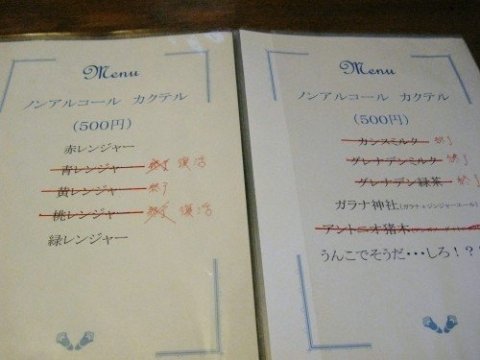 Menu
ノンアルコール カクテル
(500円)
赤レンジャー
青レンジャー 終了 復活
黄レンジャー 終了
桃レンジャー 終了 復活
緑レンジャー
Menu
ノンアルコール カクテル
(500円)
カシスミルク 終了
グレナデンミルク 終了
グレナデン緑茶 終了
ガラナ神社(ガラナ+ジンジャーエール)
アントニオ猪木
うんこでそうだ・・・しろ!?